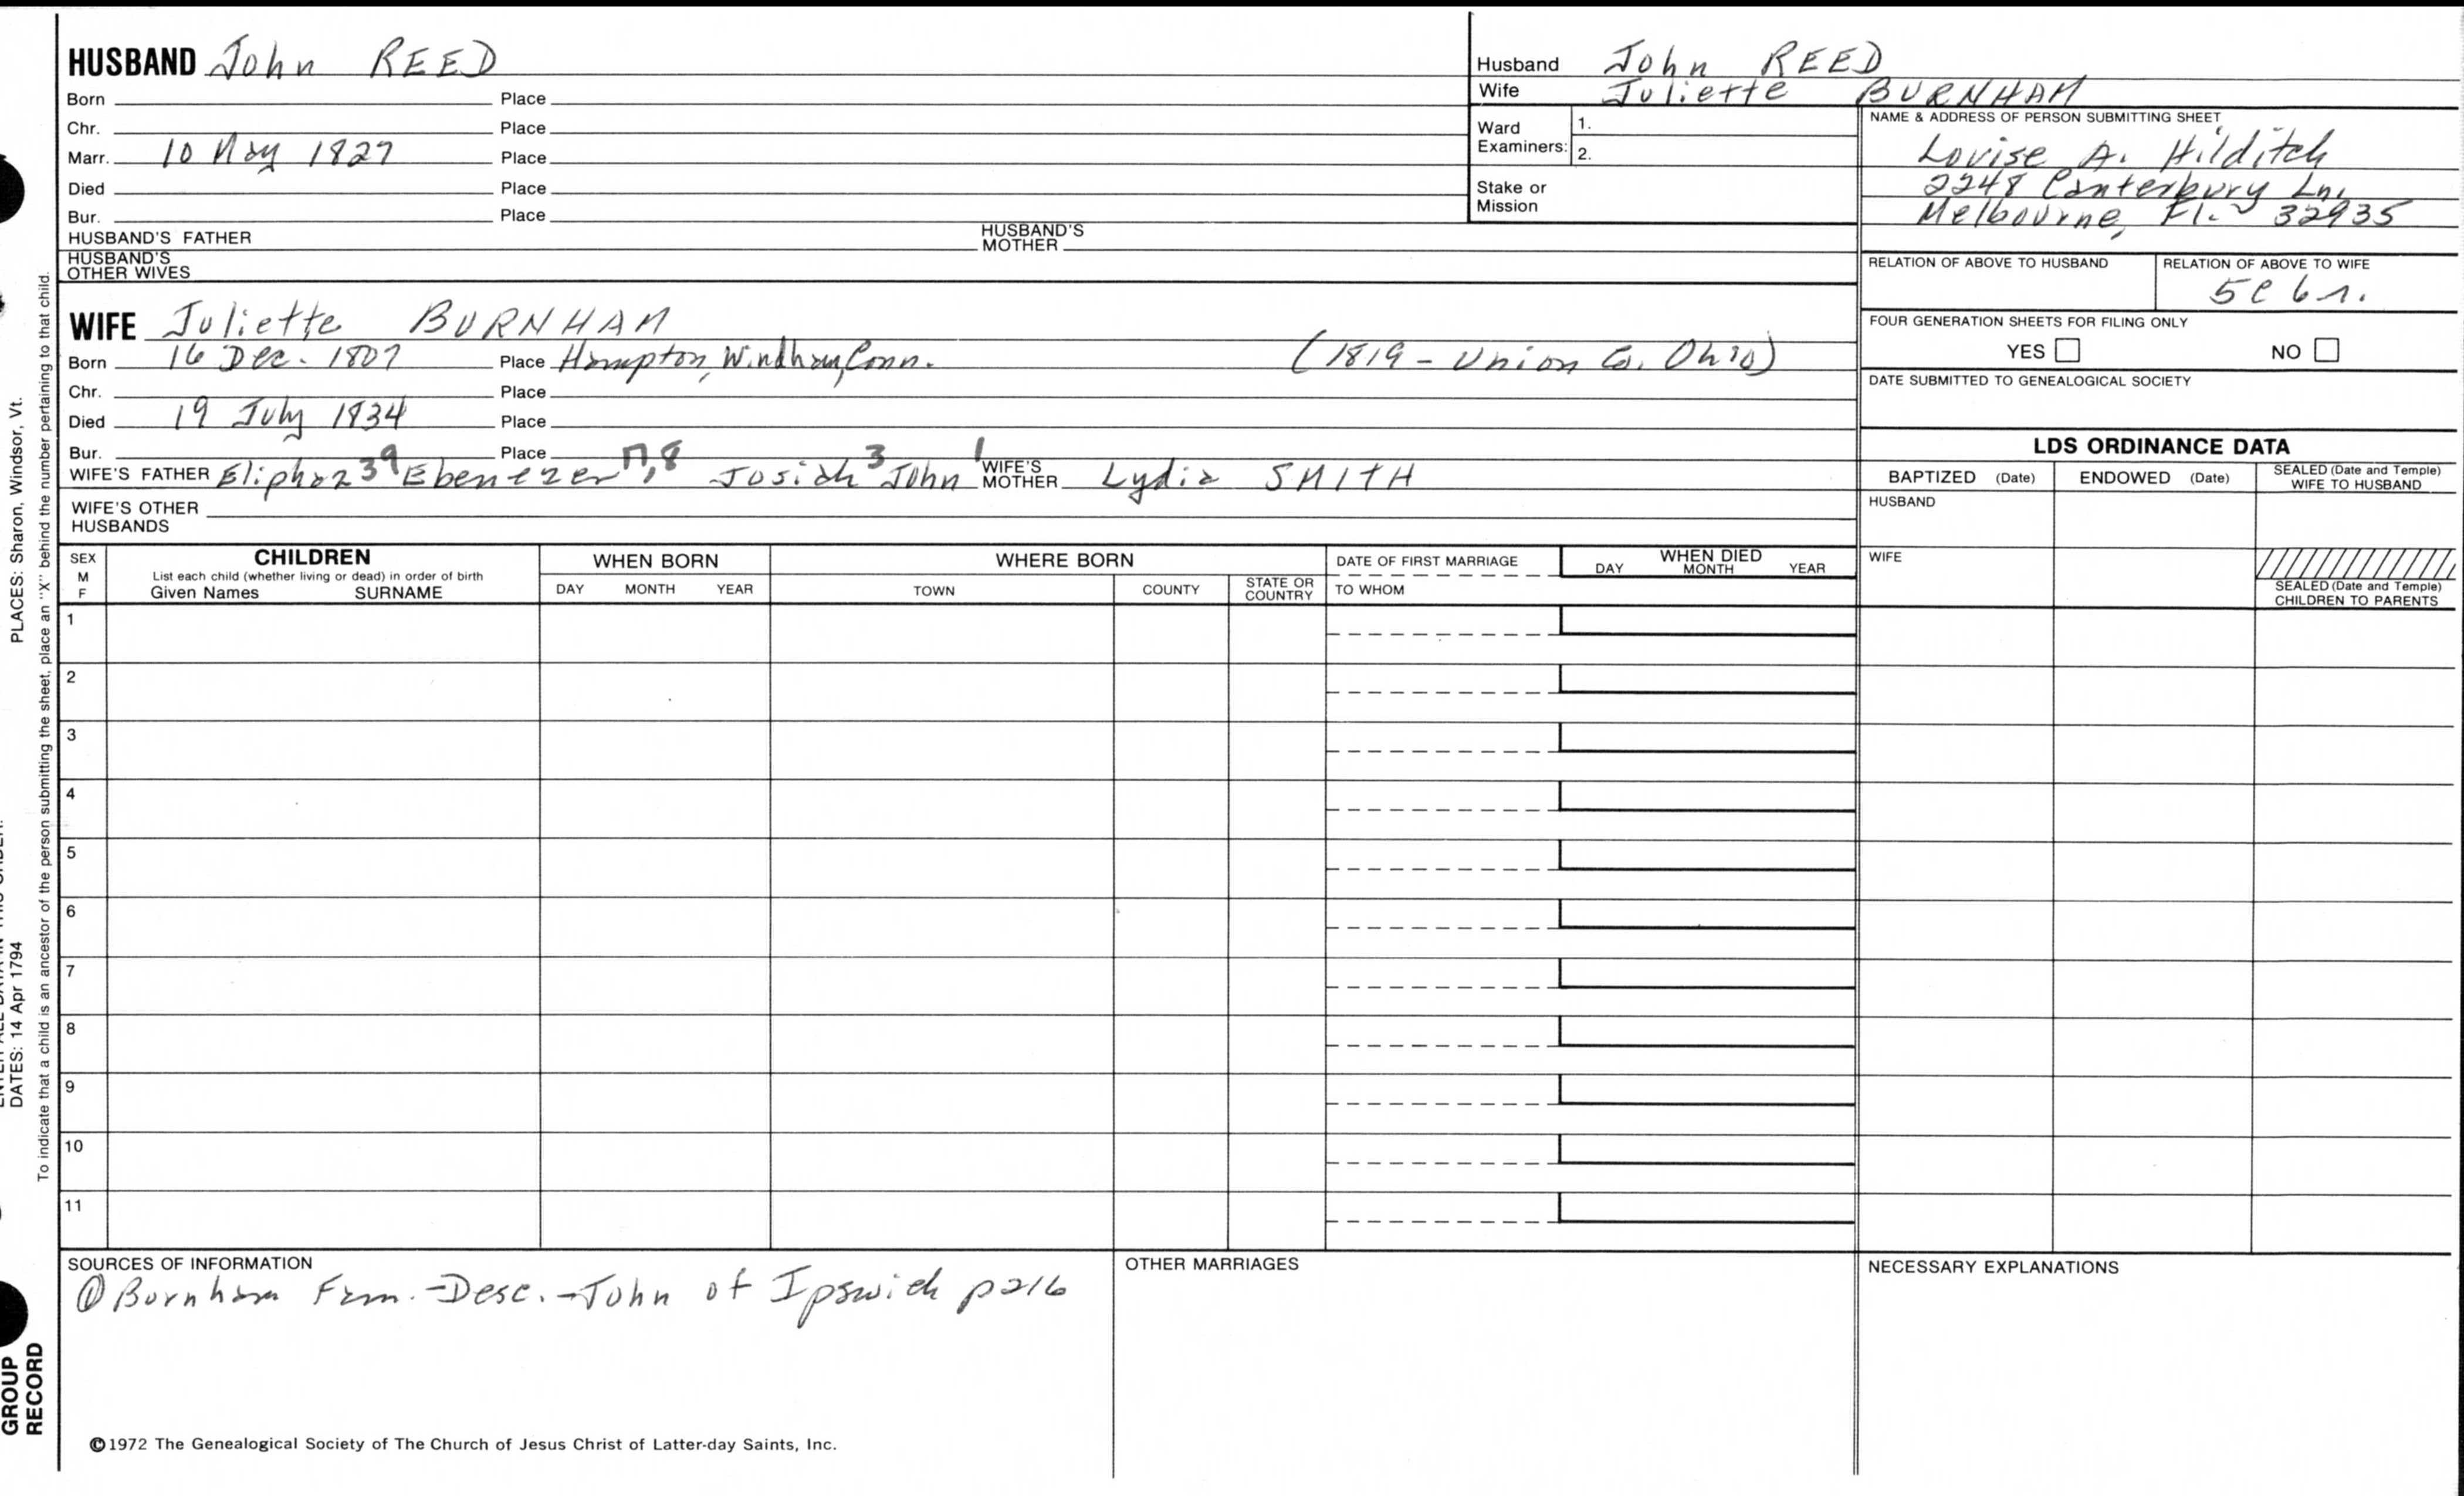 HUSBAND John REED
Born Place
Chr. Place
Marr. 10 May 1827 Place
Died Place
Bur. Place
HUSBAND'S FATHER HUSBAND'S MOTHER
HUSBAND'S OTHER WIVES
Husband John REED
Wife Juliette BURNHAM
Ward Examiners: 1.
2.
Stake or Mission
NAME & ADDRESS OF PERSON SUBMITTING SHEET
Louise A. Hilditch
2248 Canterbury Ln.
Melbourne, Fl. 32935
RELATION OF ABOVE TO HUSBAND RELATION OF ABOVE TO WIFE
5C 6 r.
FOUR GENERATION SHEETS FOR FILING ONLY
YES NO
DATE SUBMITTED TO GENEALOGICAL SOCIETY
WIFE Juliette BURNHAM
Born 16 Dec. 1807 Place Hampton, Windham, Conn. (1819 - Union Co. Ohio)
Chr. Place
Died 19 July 1834 Place
Bur. Place
WIFE'S FATHER Eliphaz 39 Ebenezer 17,8 Josiah 3 John 1 WIFE'S MOTHER Lydia SMITH
WIFE'S OTHER HUSBANDS
LDS ORDINANCE DATA
BAPTIZED (Date) ENDOWED (Date) SEALED (Date and Temple) WIFE TO HUSBAND
HUSBAND
WIFE
SEALED (Date and Temple) CHILDREN TO PARENTS
SEX M F
CHILDREN
List each child (whether living or dead) in order of birth
Given Names SURNAME
WHEN BORN
DAY MONTH YEAR
WHERE BORN
TOWN COUNTY STATE OR COUNTRY
DATE OF FIRST MARRIAGE
TO WHOM
WHEN DIED
DAY MONTH YEAR
1
2
3
4
5
6
7
8
9
10
11
SOURCES OF INFORMATION
① Burnham Fam. - Desc. - John of Ipswich p216
OTHER MARRIAGES
NECESSARY EXPLANATIONS
©1972 The Genealogical Society of The Church of Jesus Christ of Latter-day Saints, Inc.
PLACES: Sharon, Windsor, Vt.
DATES: 14 Apr 1794
To indicate that a child is an ancestor of the person submitting the sheet, place an "X" behind the number pertaining to that child.
GROUP
RECORD